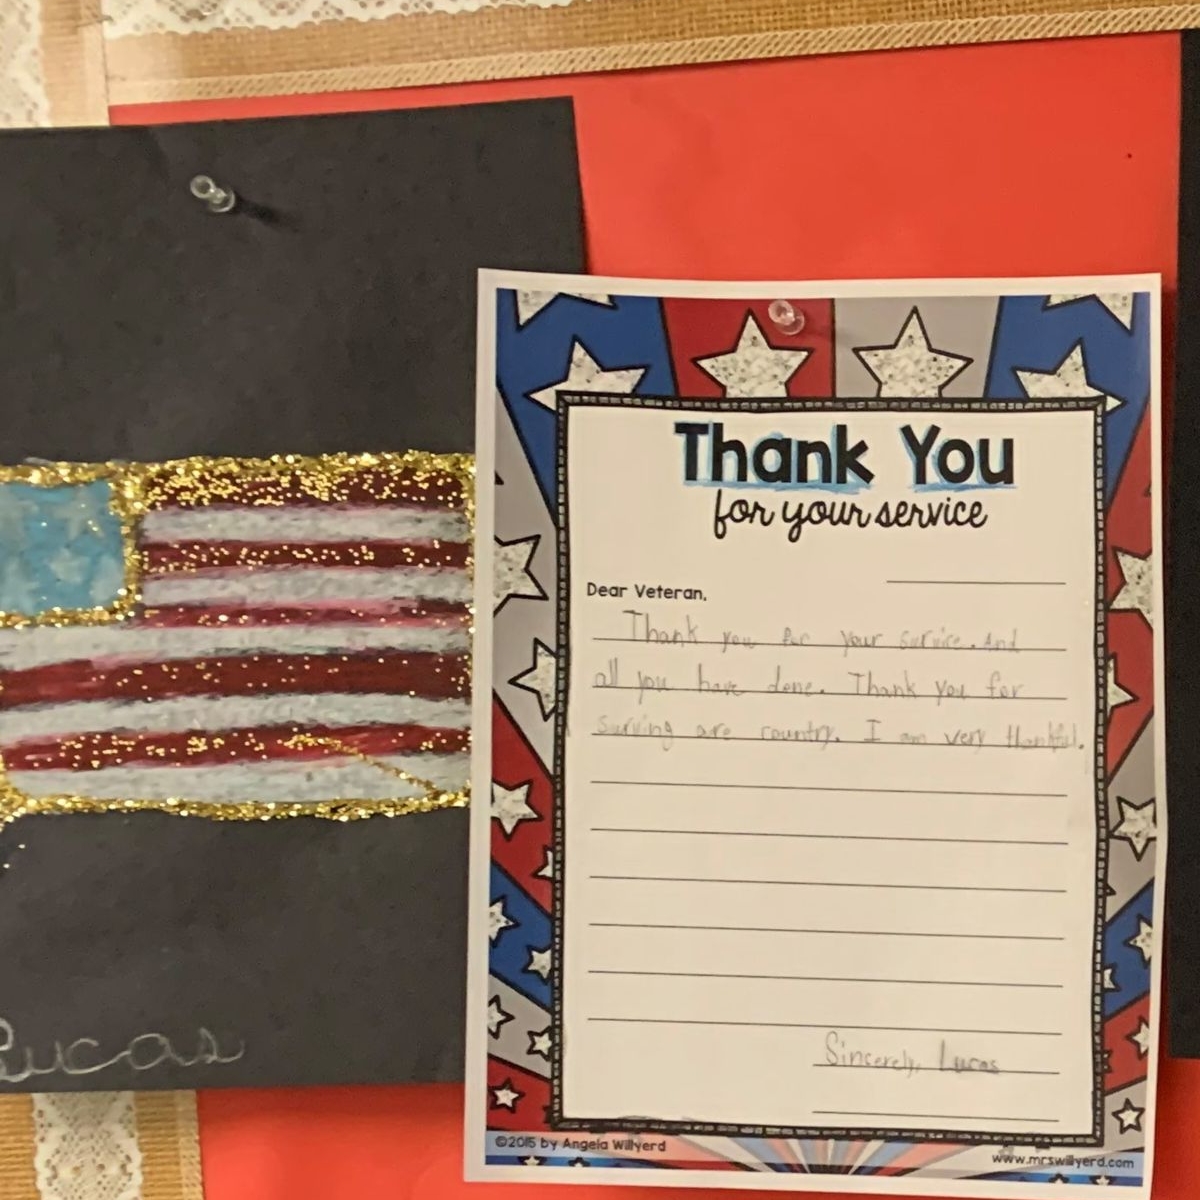 Thank You
for your service
Dear Veteran,
Thank you for your survice. And
all you have done. Thank you for
surving are country. I am very thankful.
Sincerely, Lucas
©2015 by Angela Willyerd
www.mrswillyerd.com
Lucas